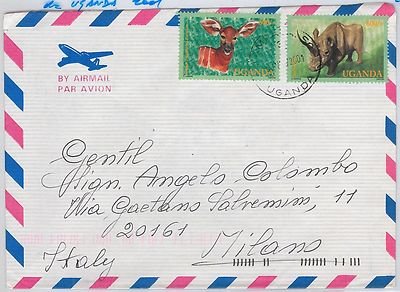 de UGANDA 2001
BY AIRMAIL
PAR AVION
UGANDA
UGANDA
2001
UGANDA
Gentil
Sign. Angelo Colombo
Via Gaetano Salvemini, 11
20161
Milano
Italy